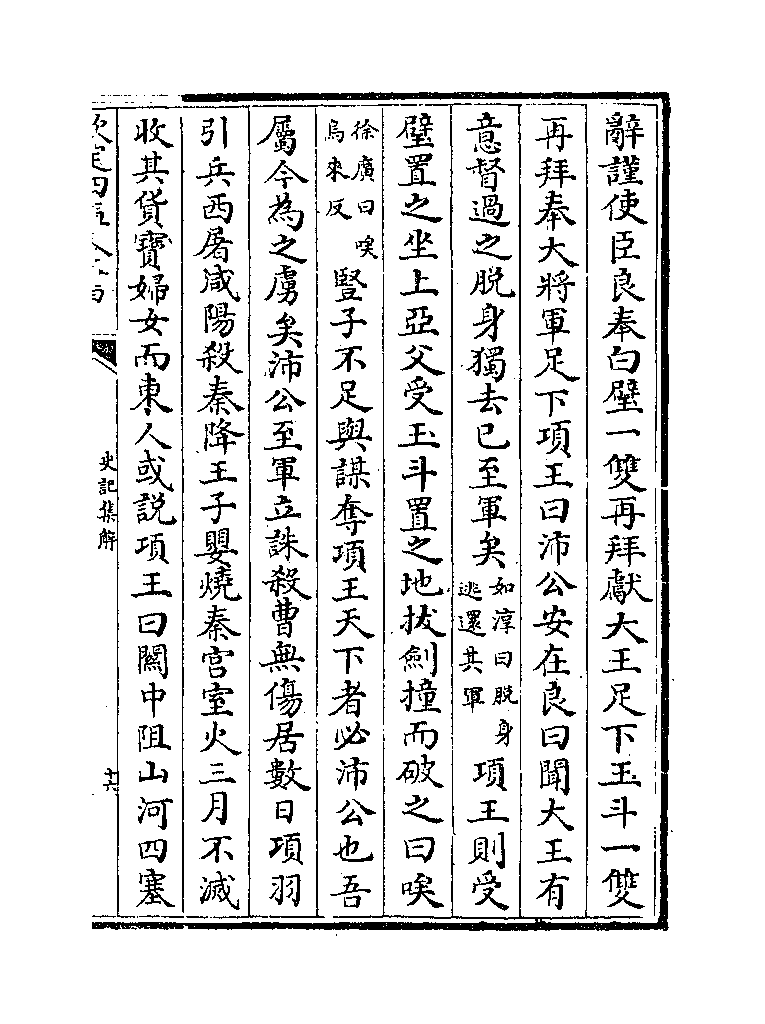 辭謹使臣良奉白璧一雙再拜獻大王足下玉斗一雙
再拜奉大將軍足下項王曰沛公安在良曰聞大王有
意督過之脱身獨去已至軍矣如淳曰脱身逃還其軍項王則受
璧置之坐上亞父受玉斗置之地拔劍撞而破之曰唉
徐廣曰唉烏來反豎子不足與謀奪項王天下者必沛公也吾
屬今為之虜矣沛公至軍立誅殺曹無傷居數日項羽
引兵西屠咸陽殺秦降王子嬰燒秦宮室火三月不滅
收其貨寶婦女而東人或説項王曰關中阻山河四塞
欽定四庫全書
史記集解
十六